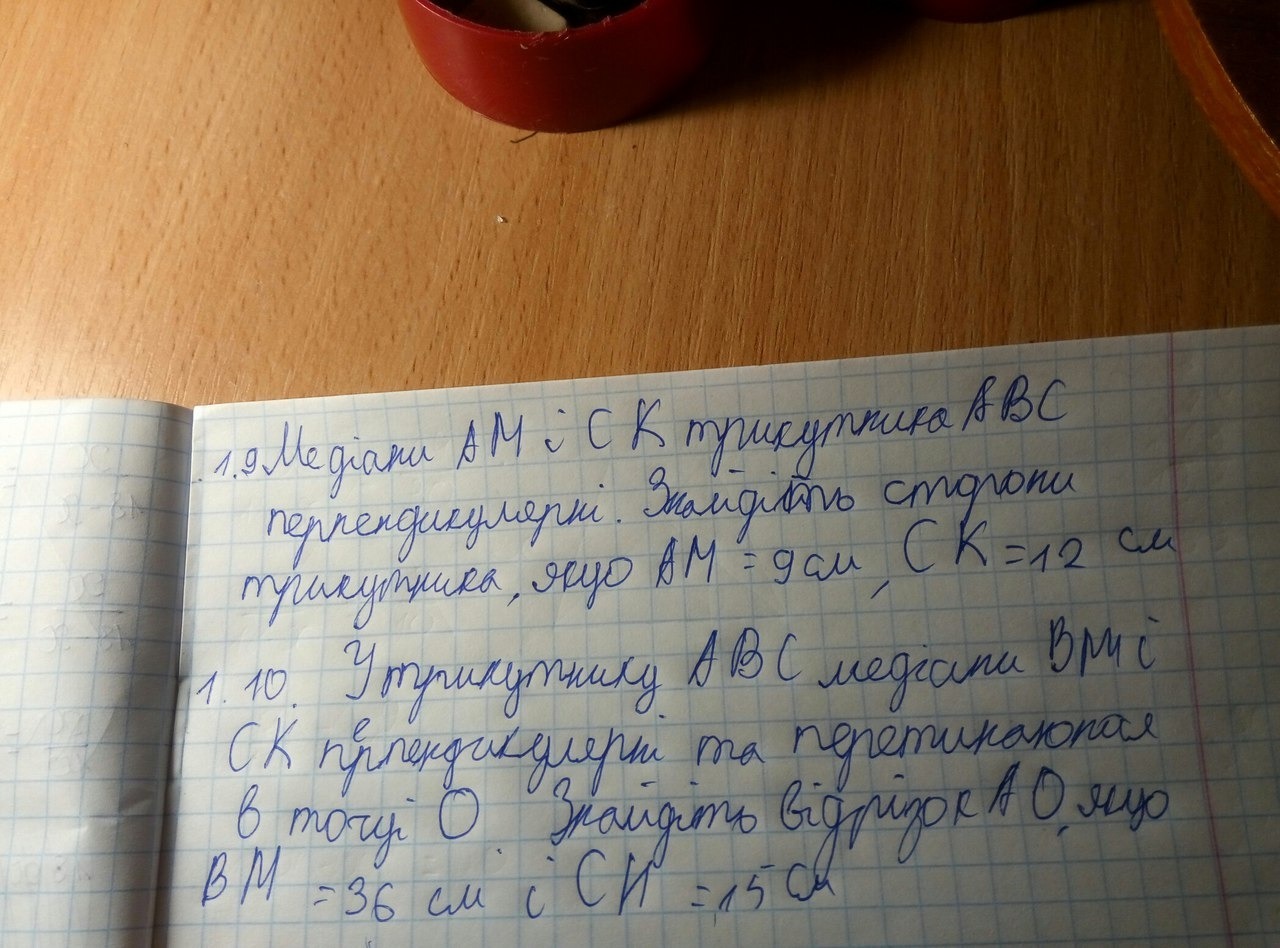 1.9 Медіани AM і CK трикутника ABC
перпендикулярні. Знайдіть сторони
трикутника, якщо AM = 9 см, CK = 12 см
1.10. У трикутнику ABC медіани BM і
CK перпендикулярні та перетинаються
в точці O. Знайдіть відрізок AO, якщо
BM = 36 см і CK = 15 см